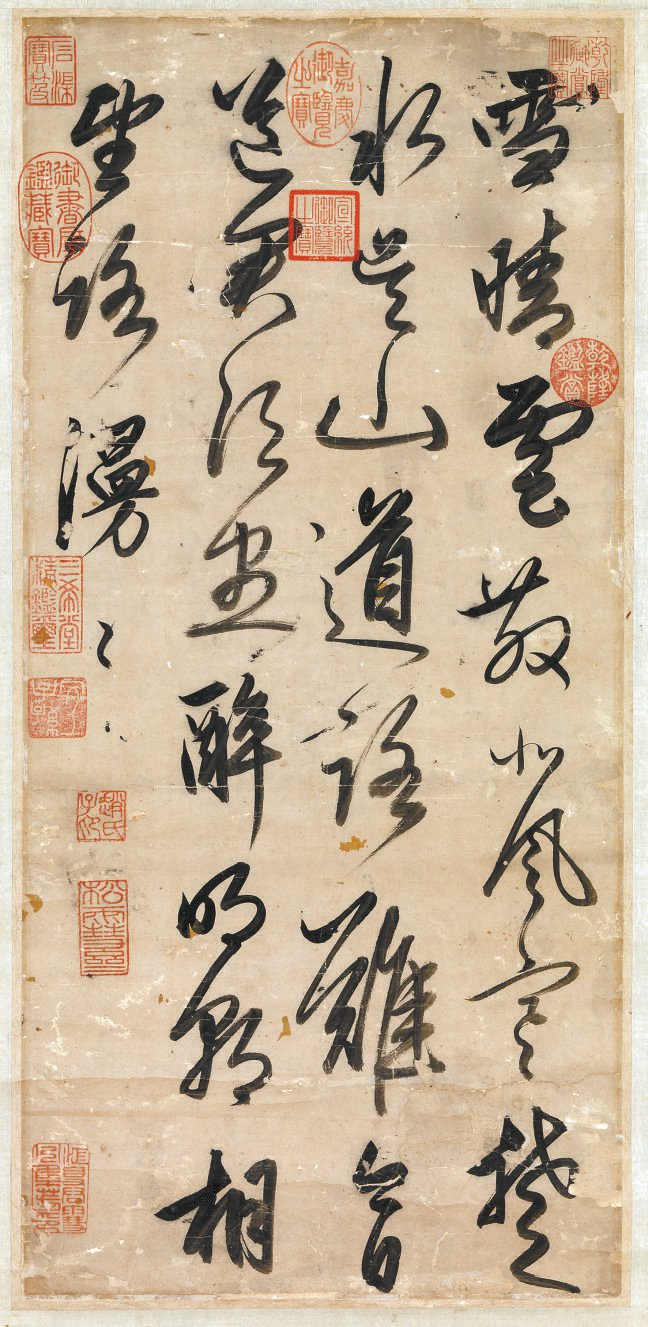 雪晴雲散北風寒楚
水吳山道路難今日
送君須盡醉明朝相
望路漫〻
乾隆鑑賞
嘉慶御覽之寶
宣統御覽之寶
石渠寶笈
御書房鑑藏寶
三希堂精鑑璽
宜子孫
趙氏子昂